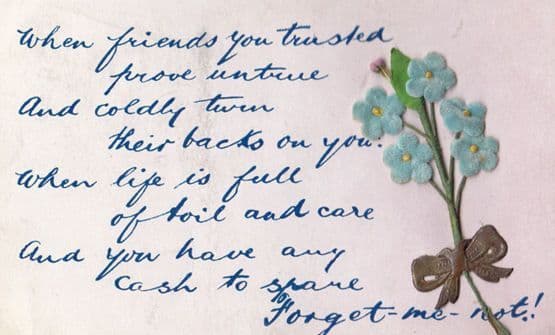 When friends you trusted
prove untrue
And coldly turn
their backs on you.
When life is full
of toil and care
And you have any
Cash to spare
Forget-me-not!